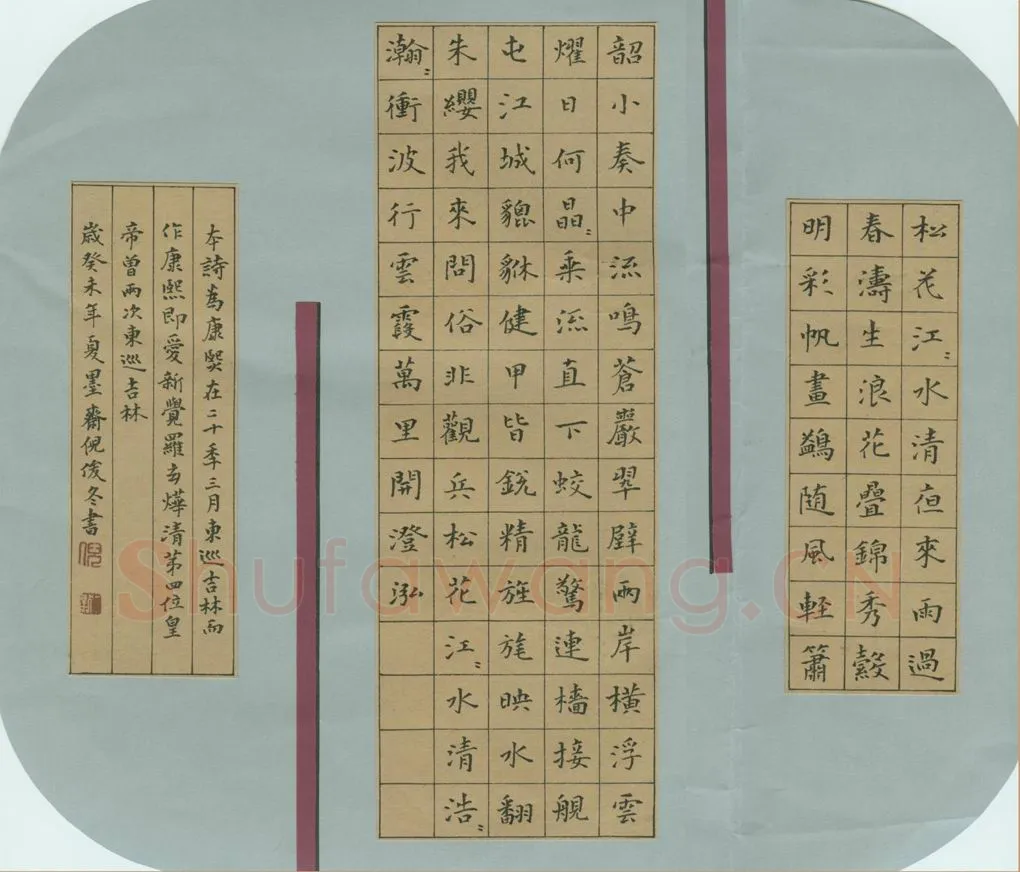 松花江〻水清亱來雨過
春濤生浪花疊錦秀縠
明彩帆畫鷁随風輕簫
韶小奏中流鳴蒼巖翠壁兩岸橫浮雲
燿日何晶〻乘流直下蛟龍驚連檣接舰
屯江城貔貅健甲皆銳精旌旄映水翻
朱纓我來問俗非觀兵松花江〻水清浩〻
瀚〻衝波行雲霞萬里開澄泓
本詩為康熙在二十季三月東巡吉林而
作康熙即愛新覺羅玄燁清第四位皇
帝曾兩次東巡吉林
歲癸未年夏墨齋倪俊冬書
Shufawang.CN